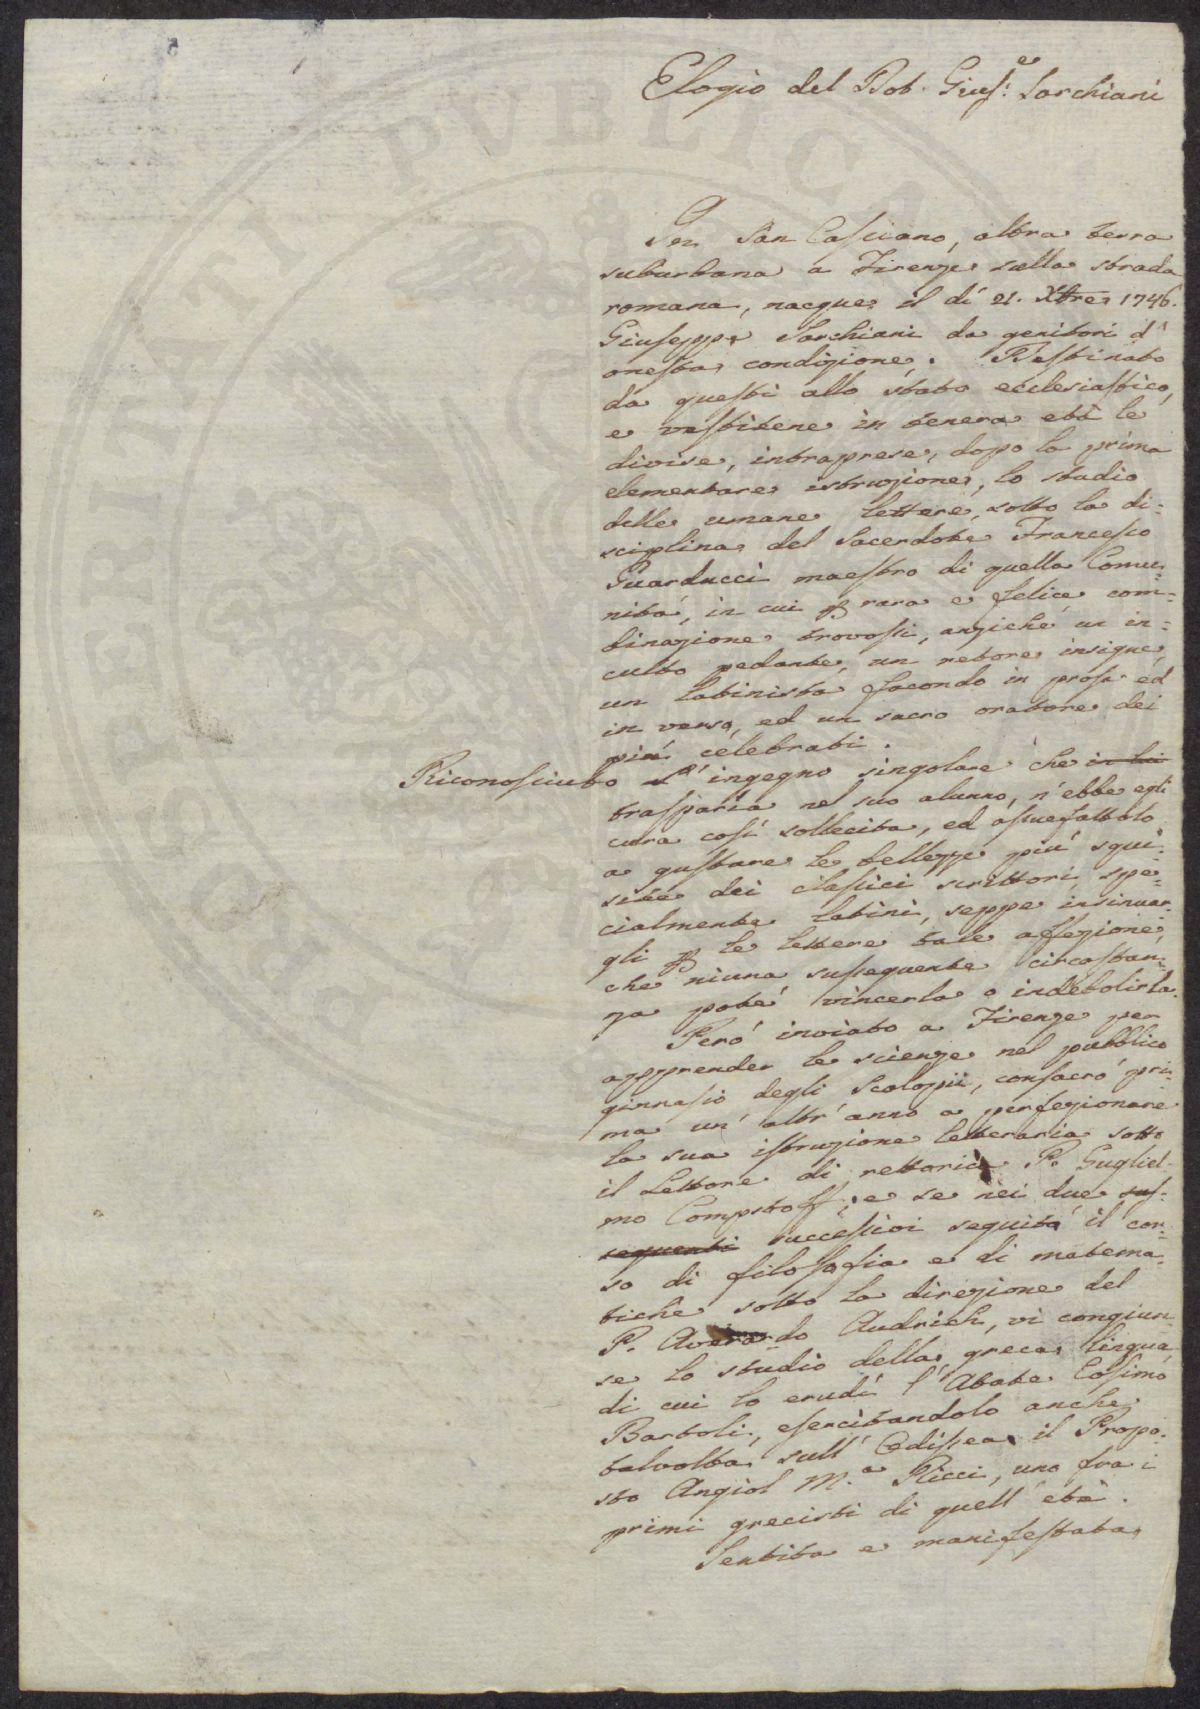 Elogio del Dot. Gius.e Sarchiani
In San Casciano, altra terra
suburbana a Firenze sulla strada
romana, nacque il dí 21. Xbre 1746.
Giuseppe Sarchiani da genitori d'
onesta condizione. Destinato
da questi allo stato ecclesiastico,
e vestitene in tenera età le
divise, intraprese, dopo la prima
elementare istruzione, lo studio
delle umane lettere, sotto la di=
sciplina del Sacerdote Francesco
Guarducci maestro di quella Comu=
nitá, in cui p rara e felice com=
binazione trovossi, anziché un in=
culto pedante, un retore insigne,
un latinista facondo in prosa ed
in verso, ed un sacro oratore dei
piú celebrati.
Riconosciuto l'ingegno singolare che in lui
trasparía nel suo alunno, n'ebbe egli
cura cosí sollecita, ed assuefattolo
a gustare le bellezze piú squi=
site dei classici scrittori, spe=
cialmente latini, seppe insinuar=
gli p le lettere tale affezione,
che niuna susseguente circostan=
za poté vincerla o indebolirla.
Peró inviato a Firenze per
appprender le scienze nel pubblico
ginnasio degli Scolopii, consacró pri=
ma un'altr'anno a perfezionare
la sua istruzione letteraria sotto
il Lettore di rettorica P. Gugliel=
mo Compstoff; e se nei due sus=
seguenti successivi seguitá il cor=
so di filosofia e di matema=
tiche sotto la direzione del
P. Averardo Audrich, vi congiun=
se lo studio della greca lingua
di cui lo erudí l'Abate Cosimo
Bartoli, esercitandolo anche
talvolta sull'Odissea il Propo=
sto Angiol M.a Ricci, uno fra i
primi grecisti di quell'età.
Sentita e manifestata
PVBLICA